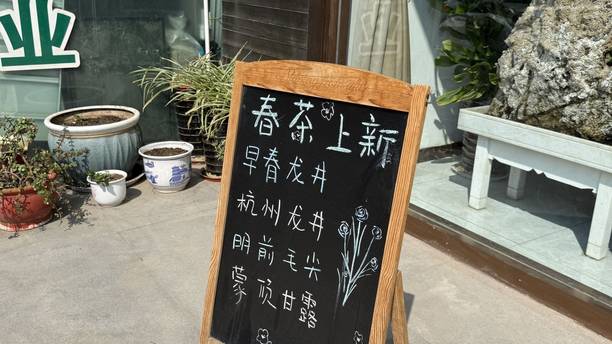 业
春茶上新
早春龙井
杭州龙井
明前毛尖
蒙顶甘露